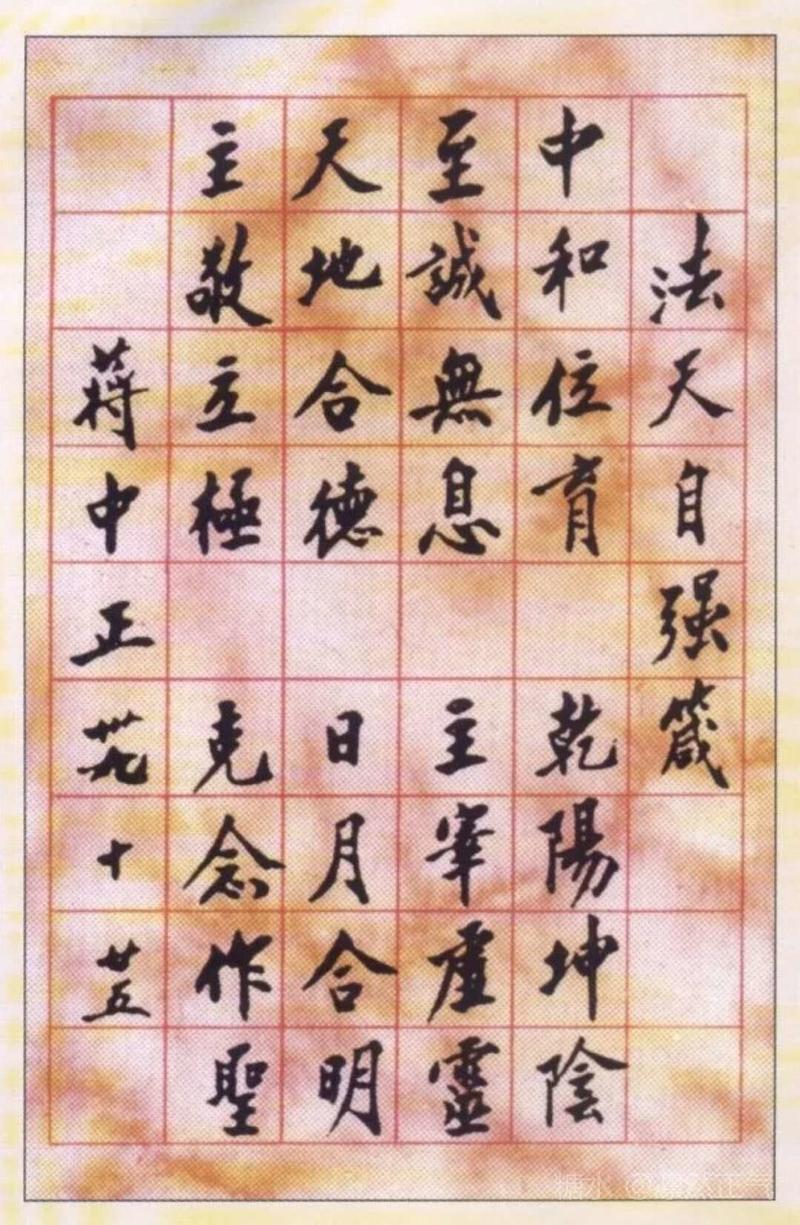 法天自强箴
中和位育 乾陽坤陰
至誠無息 主宰虛靈
天地合德 日月合明
主敬立極 克念作聖
蔣中正 卅九 十 廿五